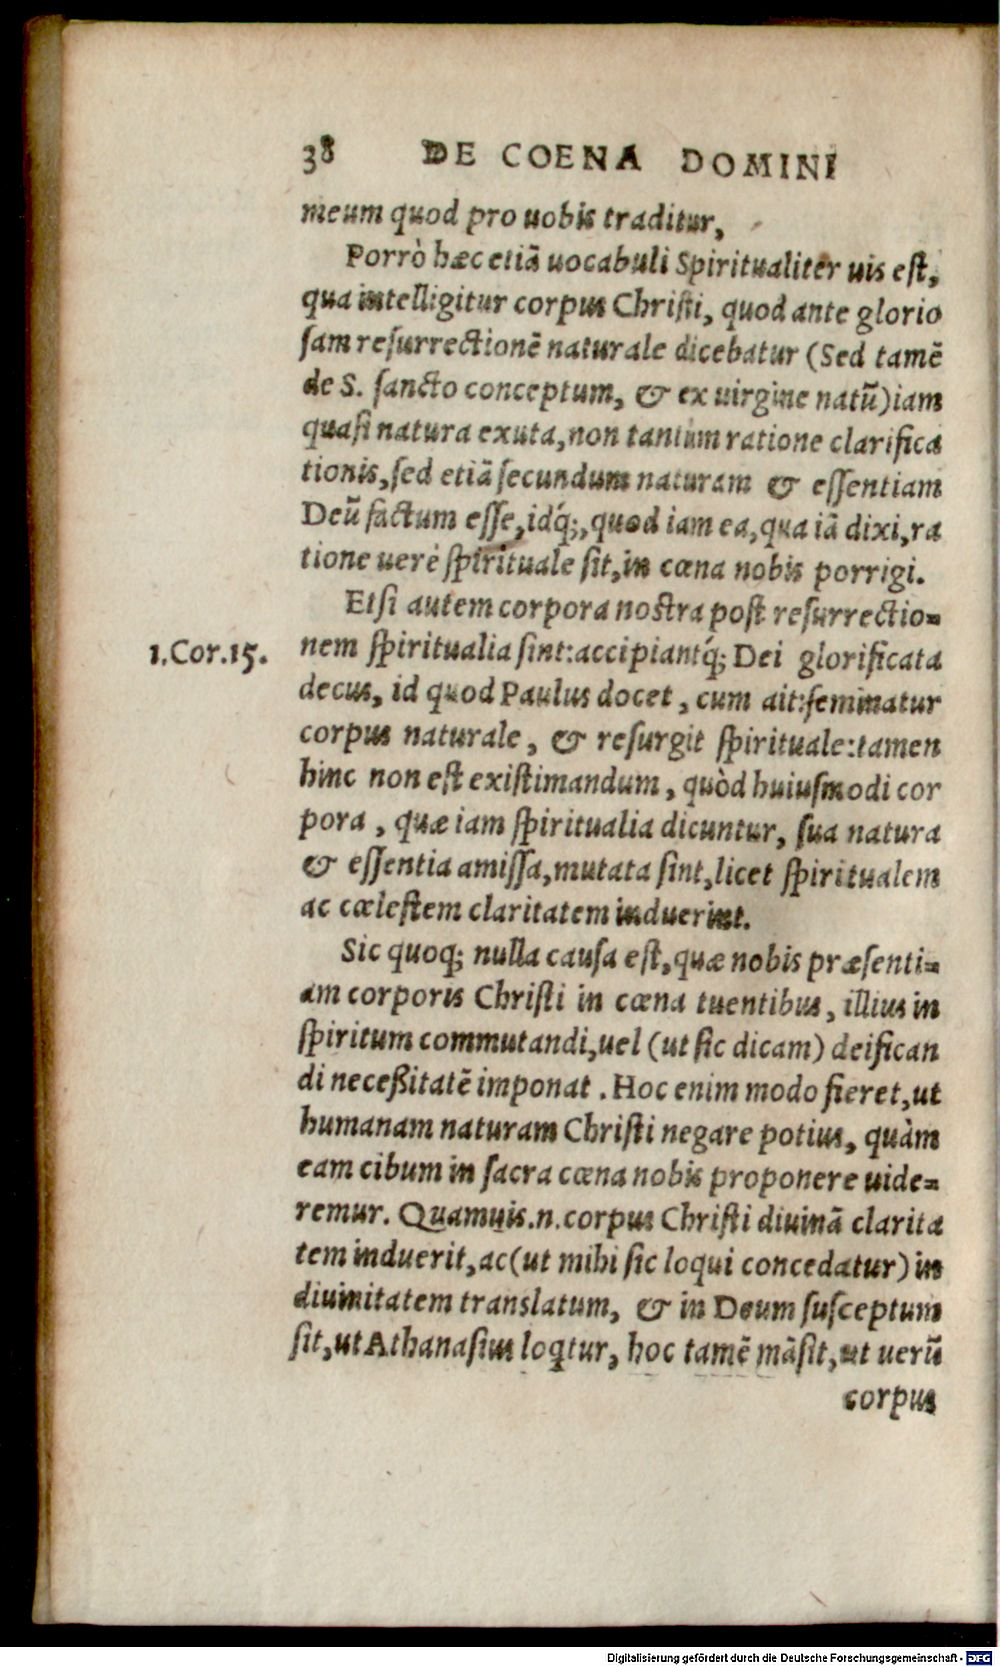 38 DE COENA DOMINI
meum quod pro uobis traditur,
Porrò hæc etiā uocabuli Spiritualiter uis est,
qua intelligitur corpus Christi, quod ante glorio
sam resurrectionē naturale dicebatur (Sed tamē
de S. sancto conceptum, & ex uirgine natū) iam
quasi natura exuta, non tantum ratione clarifica
tionis, sed etiā secundum naturam & essentiam
Deū factum esse, idq́;, quod iam ea, qua iā dixi, ra
tione uerè spirituale sit, in cœna nobis porrigi.
Etsi autem corpora nostra post resurrectio=
1. Cor. 15. nem spiritualia sint: accipiantq́; Dei glorificata
decus, id quod Paulus docet, cum ait: seminatur
corpus naturale, & resurgit spirituale: tamen
hinc non est existimandum, quòd huiusmodi cor
pora, quæ iam spiritualia dicuntur, sua natura
& essentia amissa, mutata sint, licet spiritualem
ac cœlestem claritatem induerint.
Sic quoq; nulla causa est, quæ nobis præsenti=
am corporis Christi in cœna tuentibus, illius in
spiritum commutandi, uel (ut sic dicam) deifican
di neceßitatē imponat. Hoc enim modo fieret, ut
humanam naturam Christi negare potius, quàm
eam cibum in sacra cœna nobis proponere uide=
remur. Quamuis .n. corpus Christi diuinā clarita
tem induerit, ac (ut mihi sic loqui concedatur) in
diuinitatem translatum, & in Deum susceptum
sit, ut Athanasius loqtur, hoc tamē māsit, ut uerū
corpus
Digitalisierung gefördert durch die Deutsche Forschungsgemeinschaft - DFG